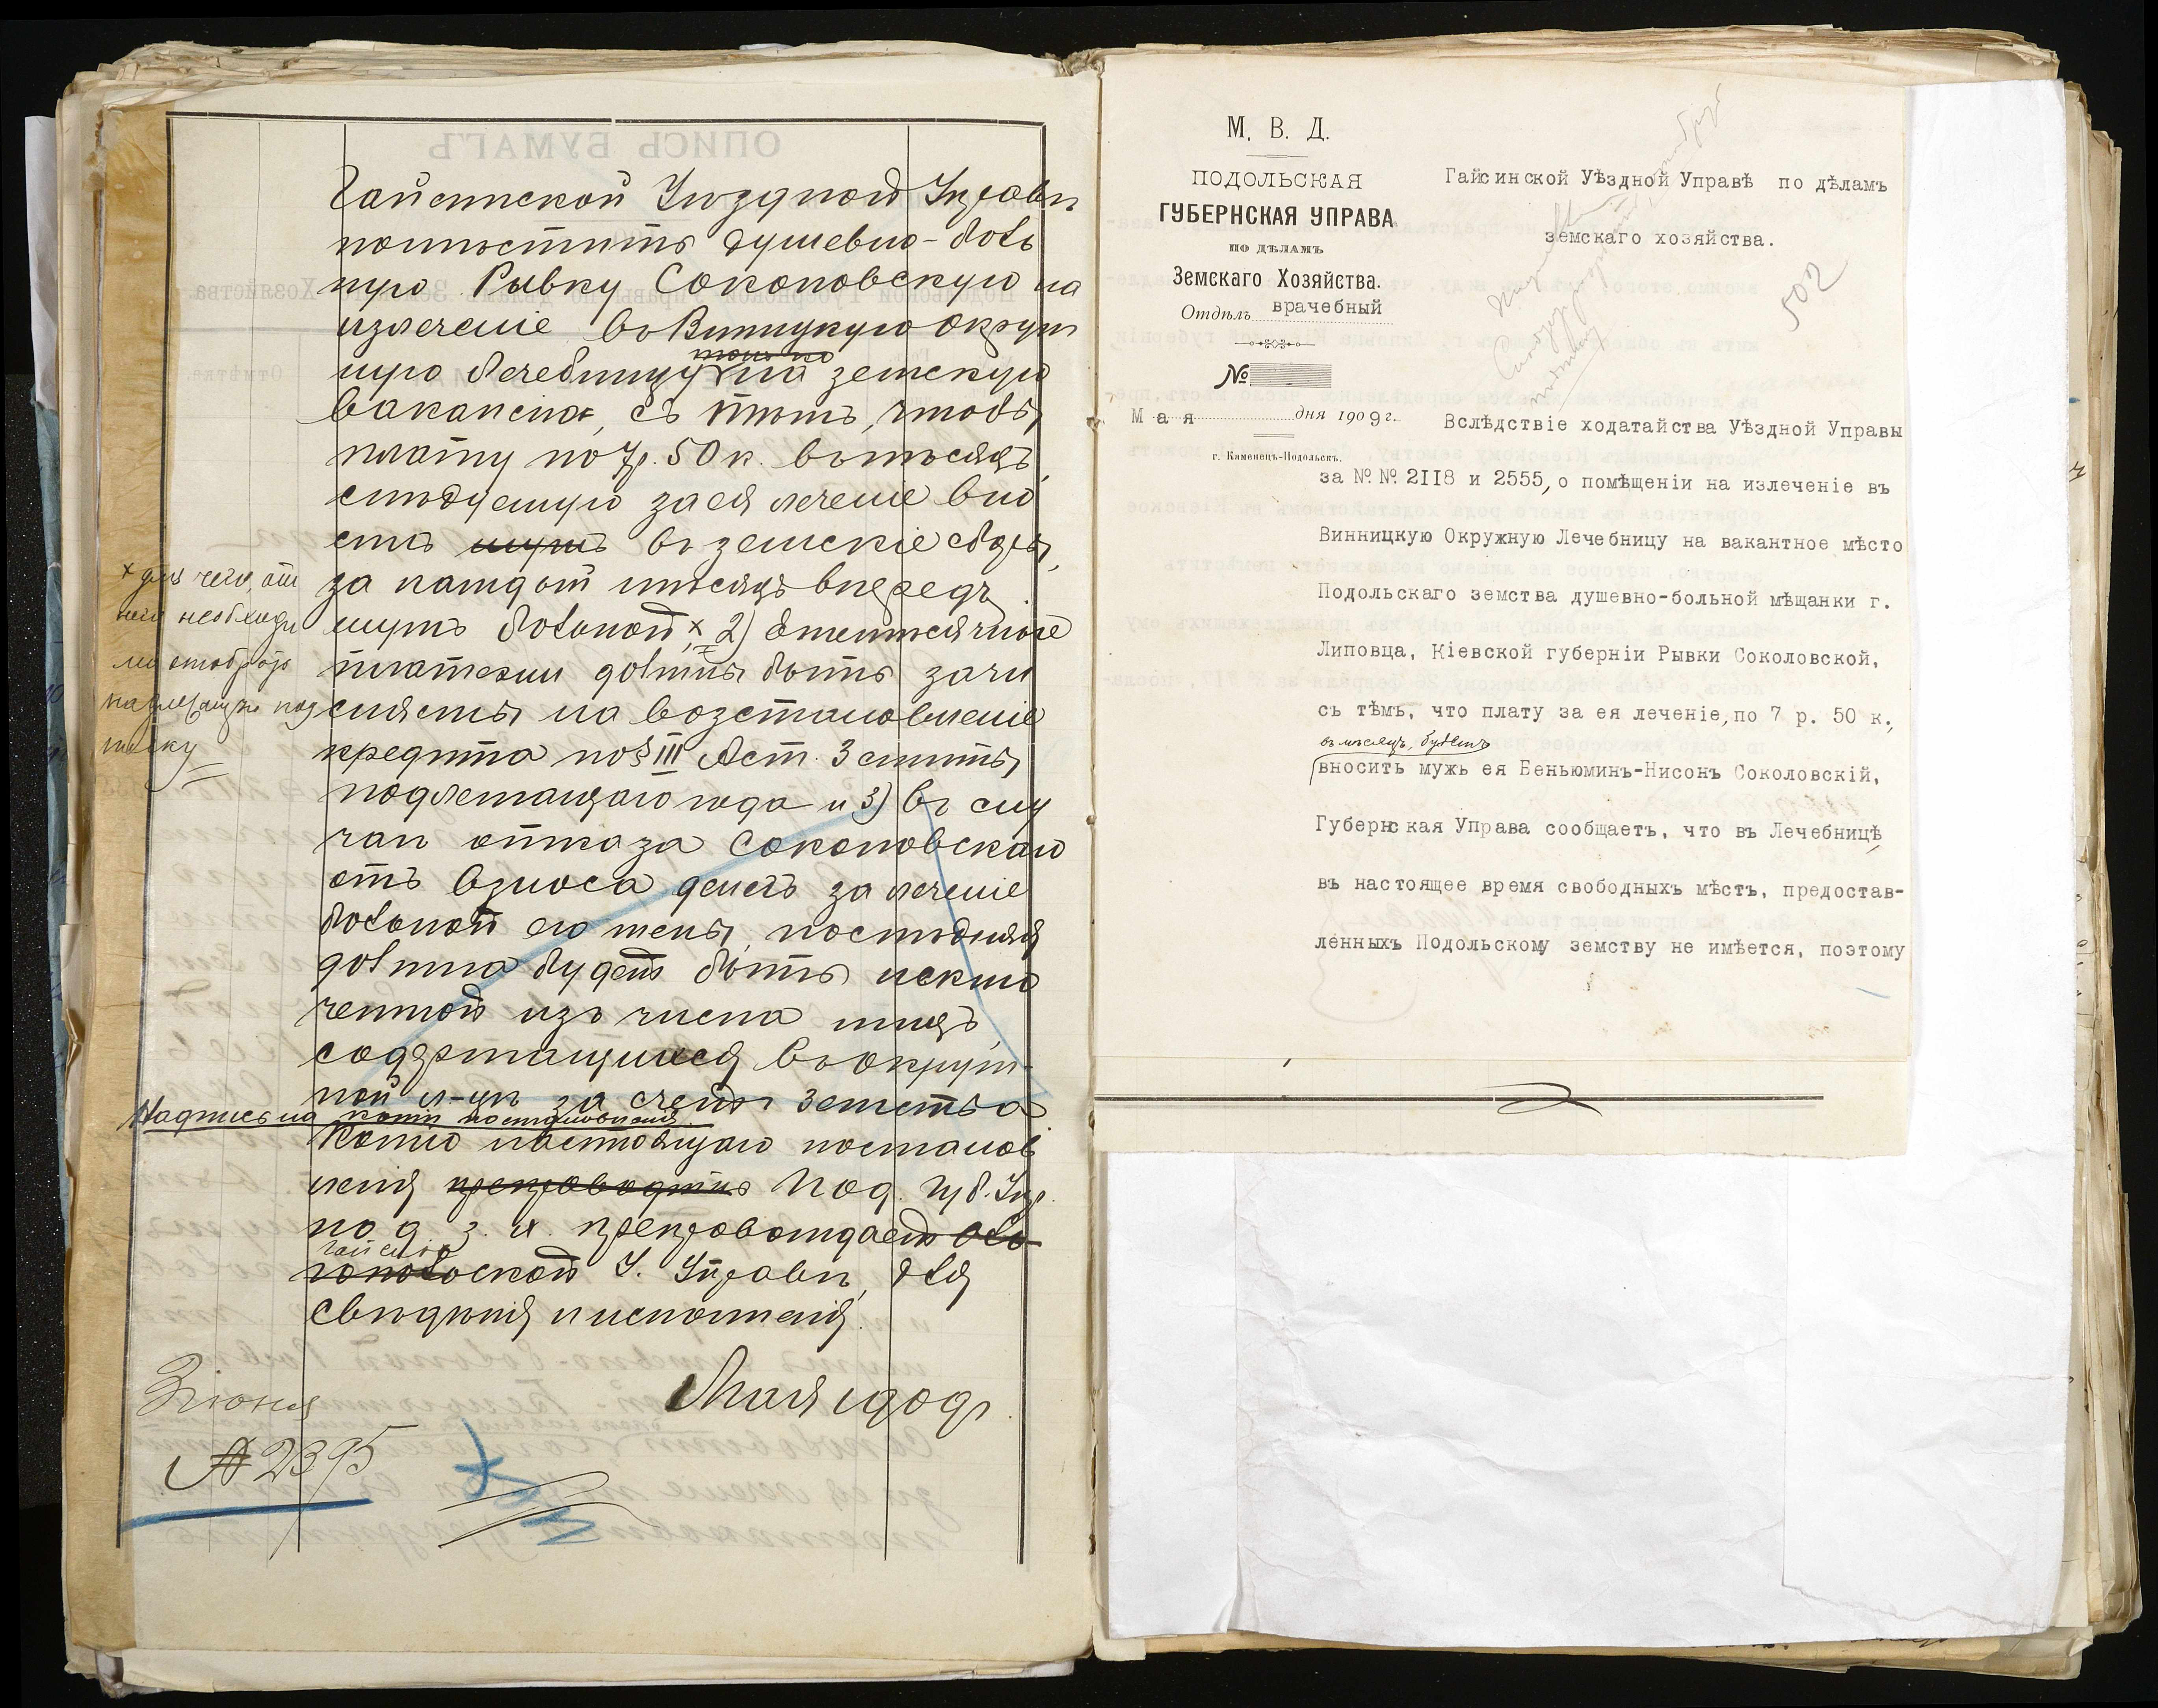 Гайсинской Уѣздной Управѣ
помѣстить душевно-боль
ную Рывку Соколовскую на
излеченіе въ Винницкую Окруж
ную Лечебницу на земскую
вакансію, съ тѣмъ, чтобы
плату по 7 р. 50 к. въ мѣсяцъ,
слѣдуемую за ея леченіе вно
силъ мужъ въ земскіе сборы,
за каждый мѣсяцъ впередъ
мужъ больной, х 2) ежемѣсячные
платежи должны быть зачи
сляемы на возстановленіе
кредита по § III Лст. 3 смѣты
подлежащаго года и 3) въ слу
чаѣ отказа Соколовскаго
отъ взноса денегъ за леченіе
больной его жены, послѣдняя
должна будетъ быть исклю
ченной изъ числа лицъ,
содержащихся въ окруж-
ной л-цѣ за счетъ земства
х для чего, отъ
него необходи
мо отобрать
надлежащую под
писку
Надпись на копіи постановленія.
Копію настоящаго постанов
ленія препроводить Под. Губ. Упр.
по д. з. х. препровождаетъ
Гайсин
ской У. Управѣ, для
свѣдѣнія и исполненія.
Мая 1909 г.
3 іюня
№ 2395
М. В. Д.
ПОДОЛЬСКАЯ
ГУБЕРНСКАЯ УПРАВА
ПО ДѢЛАМЪ
Земскаго Хозяйства.
Отдѣлъ врачебный
№
Мая дня 1909 г.
г. Каменецъ-Подольскъ.
Гайсинской Уѣздной Управѣ по дѣламъ
земскаго хозяйства.
502
Вслѣдствіе ходатайства Уѣздной Управы
за № № 2118 и 2555, о помѣщеніи на излеченіе въ
Винницкую Окружную Лечебницу на вакантное мѣсто
Подольскаго земства душевно-больной мѣщанки г.
Липовца, Кіевской губерніи Рывки Соколовской,
съ тѣмъ, что плату за ея леченіе, по 7 р. 50 к.,
въ мѣсяцъ, будетъ
вносить мужъ ея Беньюминъ-Нисонъ Соколовскій,
Губернская Управа сообщаетъ, что въ Лечебницѣ,
въ настоящее время свободныхъ мѣстъ, предостав-
ленныхъ Подольскому земству не имѣется, поэтому